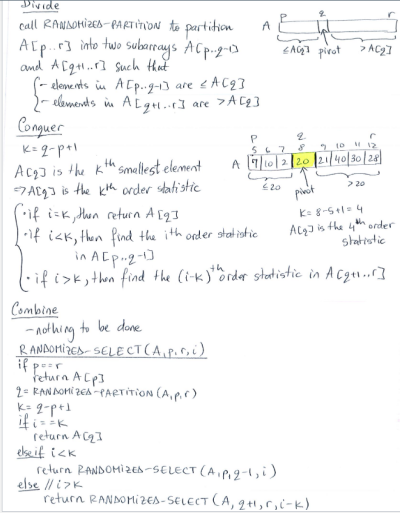 Divide
call RANDOMIZED-PARTITION to partition
A[p..r] into two subarrays A[p..q-1]
and A[q+1..r] such that
- elements in A[p..q-1] are ≤ A[q]
- elements in A[q+1..r] are > A[q]
p q r
A
≤A[q] pivot >A[q]
Conquer
K = q-p+1
A[q] is the Kth smallest element
⇒ A[q] is the Kth order statistic
• if i=K, then return A[q]
• if i<K, then find the ith order statistic
in A[p..q-1]
• if i>K, then find the (i-K)th order statistic in A[q+1..r]
p q r
5 6 7 8 9 10 11 12
A 7 10 2 20 21 40 30 28
≤20 pivot >20
K = 8-5+1 = 4
A[q] is the 4th order
statistic
Combine
- nothing to be done
RANDOMIZED-SELECT(A,p,r,i)
if p==r
return A[p]
q = RANDOMIZED-PARTITION(A,p,r)
K = q-p+1
if i==K
return A[q]
else if i<K
return RANDOMIZED-SELECT(A,p,q-1,i)
else // i>K
return RANDOMIZED-SELECT(A,q+1,r,i-K)